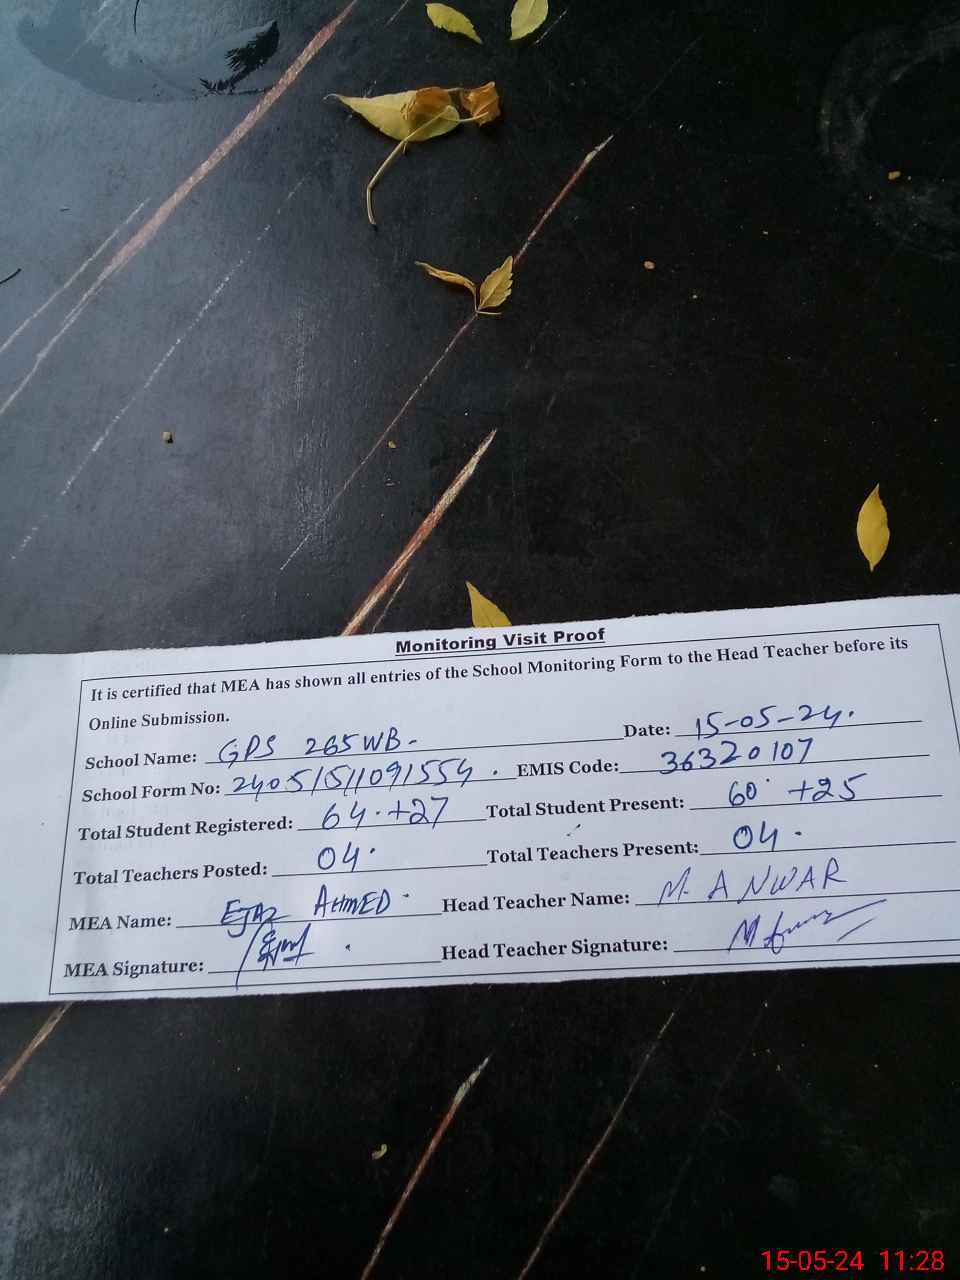 Monitoring Visit Proof
It is certified that MEA has shown all entries of the School Monitoring Form to the Head Teacher before its
Online Submission.
School Name: GPS 265 WB- Date: 15-05-24.
School Form No: EMIS Code: 36320107
Total Student Registered: 64.+27 Total Student Present: 60 +25
Total Teachers Posted: 04. Total Teachers Present: 04.
MEA Name: EJAZ AHMED Head Teacher Name: M. ANWAR
MEA Signature: Head Teacher Signature:
15-05-24 11:28